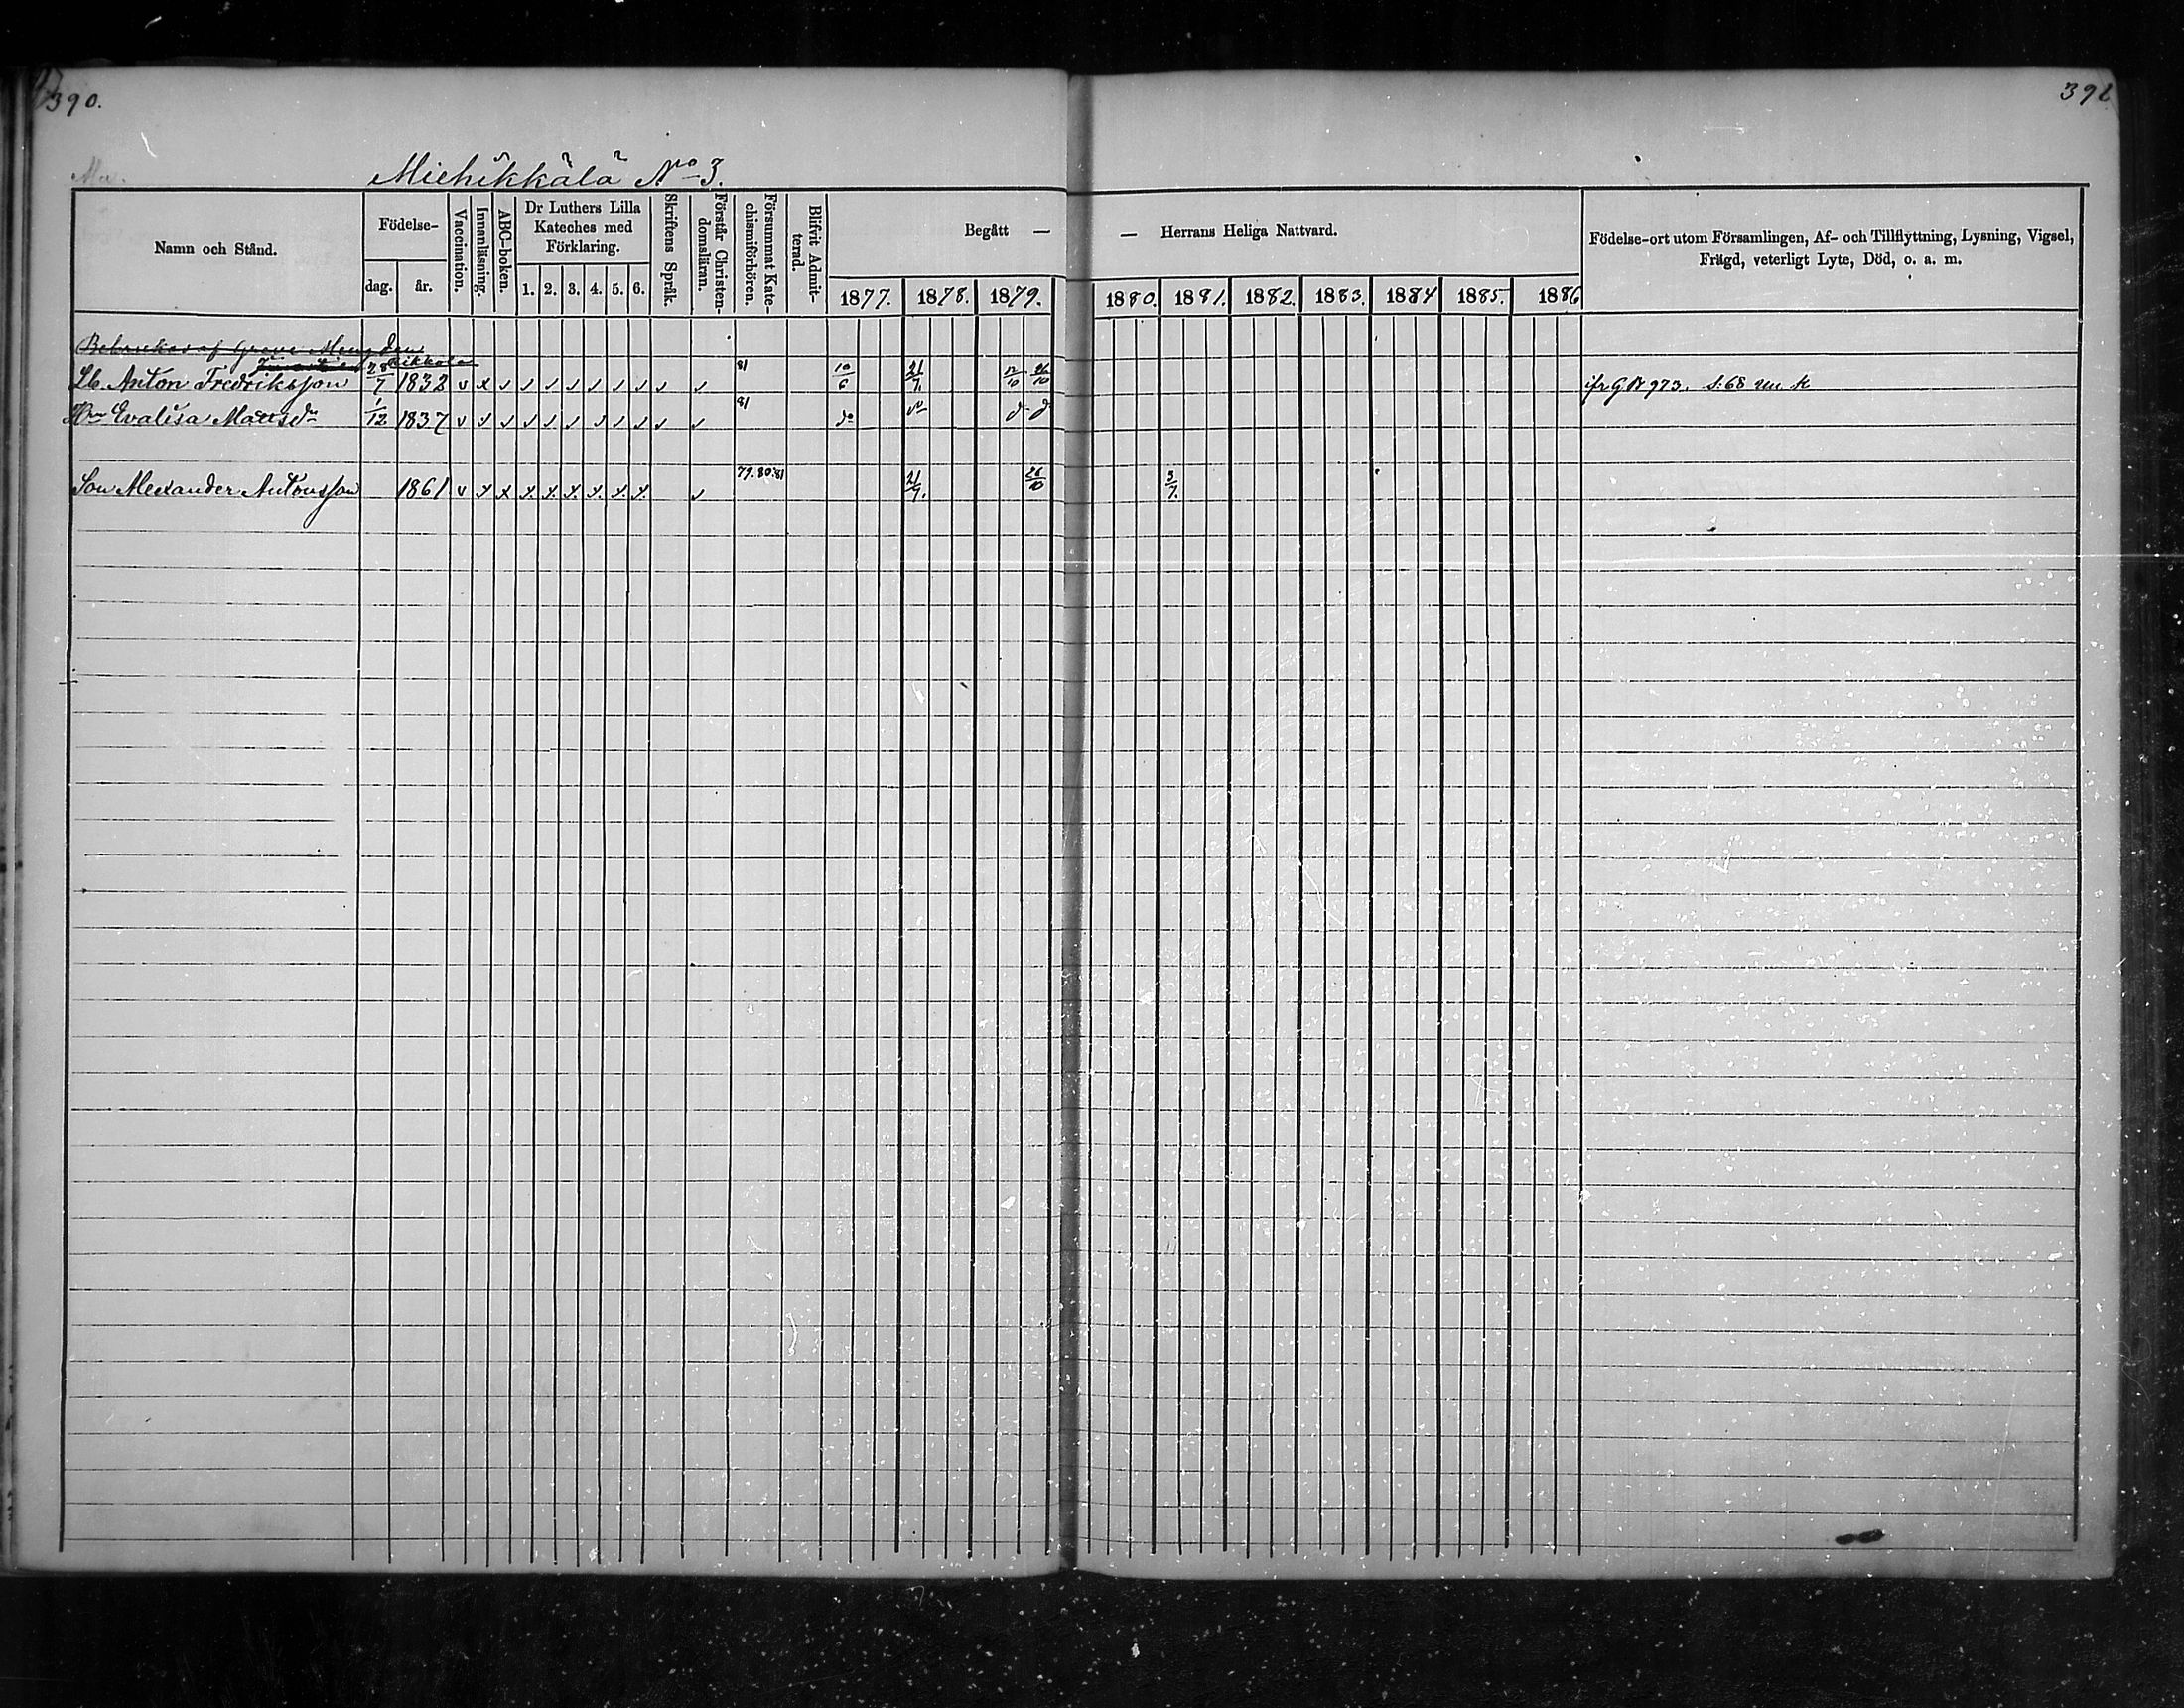 390.
391
Miehikkälä No 3.
Namn och Stånd.
Födelse-
dag.
år.
Vaccination.
Innanläsning.
ABC-boken.
Dr Luthers Lilla
Kateches med
Förklaring.
1. 2. 3. 4. 5. 6.
Skriftens Språk.
Förstår Christen-
domsläran.
Försummat Kate-
chismiförhören.
Blifvit Admit-
terad.
Begått —
— Herrans Heliga Nattvard.
1877. 1878. 1879. 1880. 1881. 1882. 1883. 1884 1885. 1886
Födelse-ort utom Församlingen, Af- och Tillflyttning, Lysning, Vigsel,
Frägd, veterligt Lyte, Död, o. a. m.
af Greve
Lb. Anton Fredriksson 28/7 1832 81 10/6 21/7 12/10 26/10
Evalisa Mattsdr 1/12 1837 81 do
Son Alexander Antonsson 1861 79. 80. 81 21/7. 26/10 3/7.